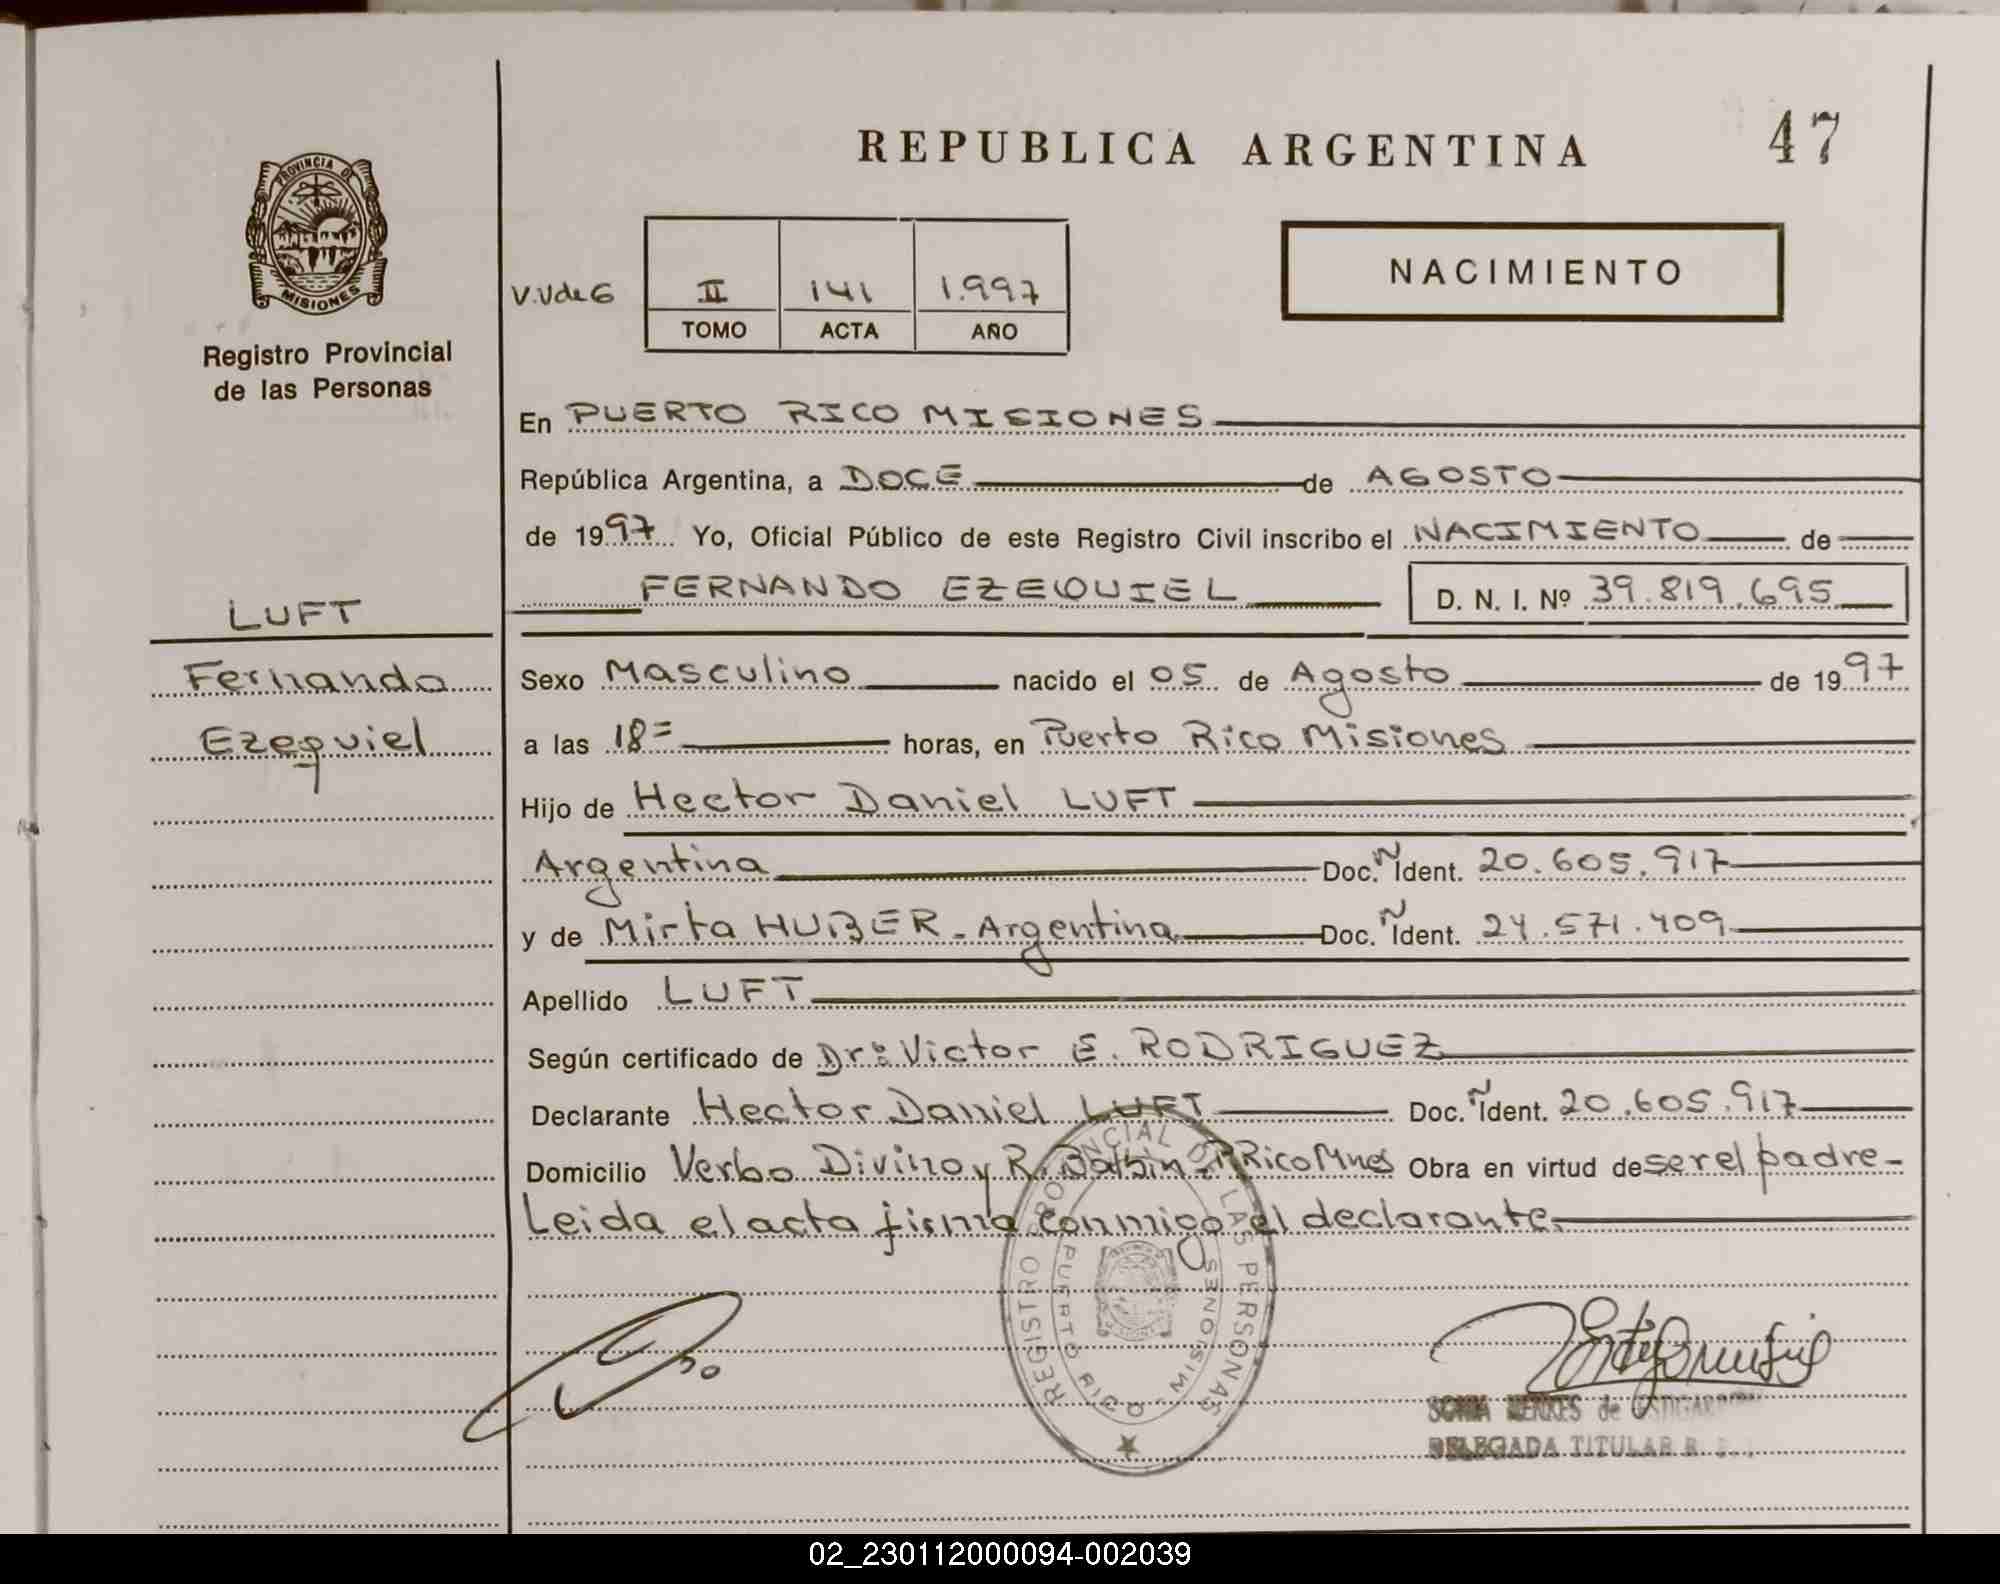 REPUBLICA ARGENTINA
47
PROVINCIA DE
MISIONES
Registro Provincial
de las Personas
V.V de G
II 141 1.997
TOMO ACTA AÑO
NACIMIENTO
En PUERTO RICO MISIONES
República Argentina, a DOCE de AGOSTO
de 1997 Yo, Oficial Público de este Registro Civil inscribo el NACIMIENTO de
FERNANDO EZEQUIEL D. N. I. Nº 39.819.695
LUFT
Fernando
Ezequiel
Sexo Masculino nacido el 05 de Agosto de 1997
a las 18= horas, en Puerto Rico Misiones
Hijo de Hector Daniel LUFT
Argentina Doc. Ñ Ident. 20.605.917
y de Mirta HUBER - Argentina Doc. Ñ Ident. 24.571.409
Apellido LUFT
Según certificado de Dr: Victor E. RODRIGUEZ
Declarante Hector Daniel LUFT Doc. Ñ Ident. 20.605.917
Domicilio Verbo Divino y R. Balbin - P Rico Mnes Obra en virtud de ser el padre -
Leida el acta firma conmigo el declarante.
REGISTRO PROVINCIAL DE LAS PERSONAS
PUERTO RICO - MISIONES
SONIA de
DELEGADA TITULAR R.
02_230112000094-002039